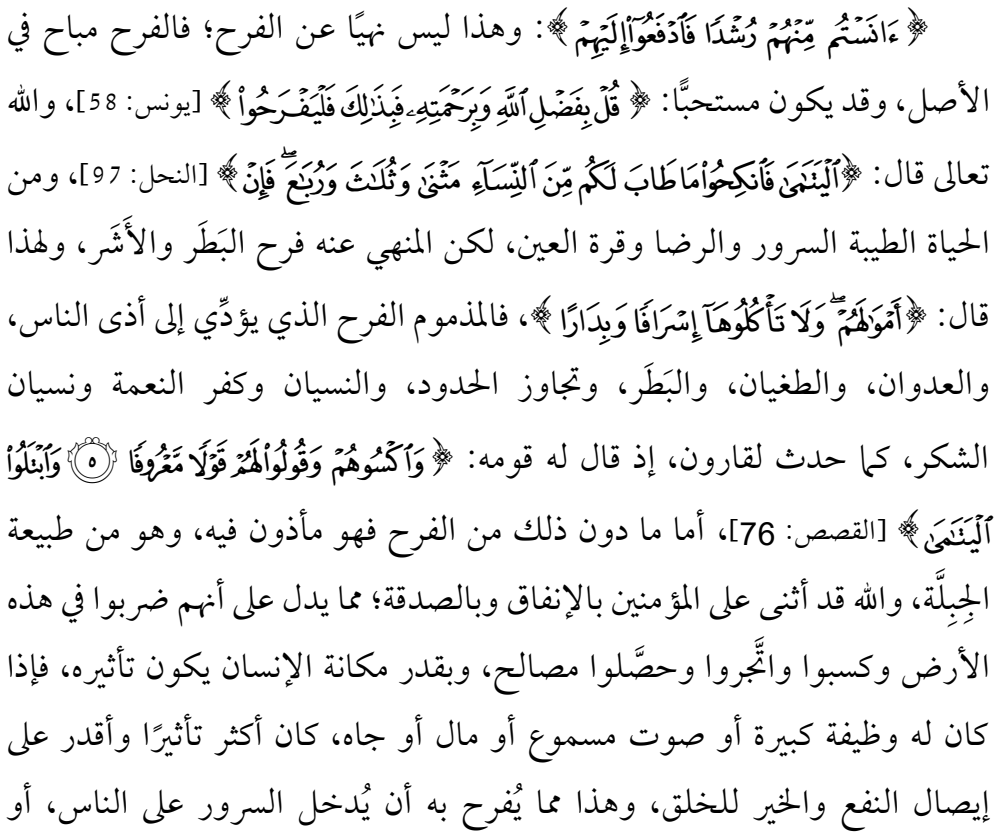 ﴿ ءَانَسۡتُم مِّنۡهُمۡ رُشۡدٗا فَٱدۡفَعُوٓاْ إِلَيۡهِمۡ ﴾: وهذا ليس نهيًا عن الفرح؛ فالفرح مباح في
الأصل، وقد يكون مستحبًّا: ﴿ قُلۡ بِفَضۡلِ ٱللَّهِ وَبِرَحۡمَتِهِۦ فَبِذَٰلِكَ فَلۡيَفۡرَحُواْ ﴾ [يونس: 58]، والله
تعالى قال: ﴿ٱلۡيَتَٰمَىٰ فَٱنكِحُواْ مَا طَابَ لَكُم مِّنَ ٱلنِّسَآءِ مَثۡنَىٰ وَثُلَٰثَ وَرُبَٰعَۖ فَإِنۡ ﴾ [النحل: 97]، ومن
الحياة الطيبة السرور والرضا وقرة العين، لكن المنهي عنه فرح البَطَر والأَشَر، ولهذا
قال: ﴿أَمۡوَٰلَهُمۡۖ وَلَا تَأۡكُلُوهَآ إِسۡرَافٗا وَبِدَارًا ﴾، فالمذموم الفرح الذي يؤدِّي إلى أذى الناس،
والعدوان، والطغيان، والبَطَر، وتجاوز الحدود، والنسيان وكفر النعمة ونسيان
الشكر، كما حدث لقارون، إذ قال له قومه: ﴿ وَٱكۡسُوهُمۡ وَقُولُواْ لَهُمۡ قَوۡلٗا مَّعۡرُوفٗا ۝٥ وَٱبۡتَلُواْ
ٱلۡيَتَٰمَىٰ ﴾ [القصص: 76]، أما ما دون ذلك من الفرح فهو مأذون فيه، وهو من طبيعة
الجِبِلَّة، والله قد أثنى على المؤمنين بالإنفاق وبالصدقة؛ مما يدل على أنهم ضربوا في هذه
الأرض وكسبوا واتَّجروا وحصَّلوا مصالح، وبقدر مكانة الإنسان يكون تأثيره، فإذا
كان له وظيفة كبيرة أو صوت مسموع أو مال أو جاه، كان أكثر تأثيرًا وأقدر على
إيصال النفع والخير للخلق، وهذا مما يُفرح به أن يُدخل السرور على الناس، أو